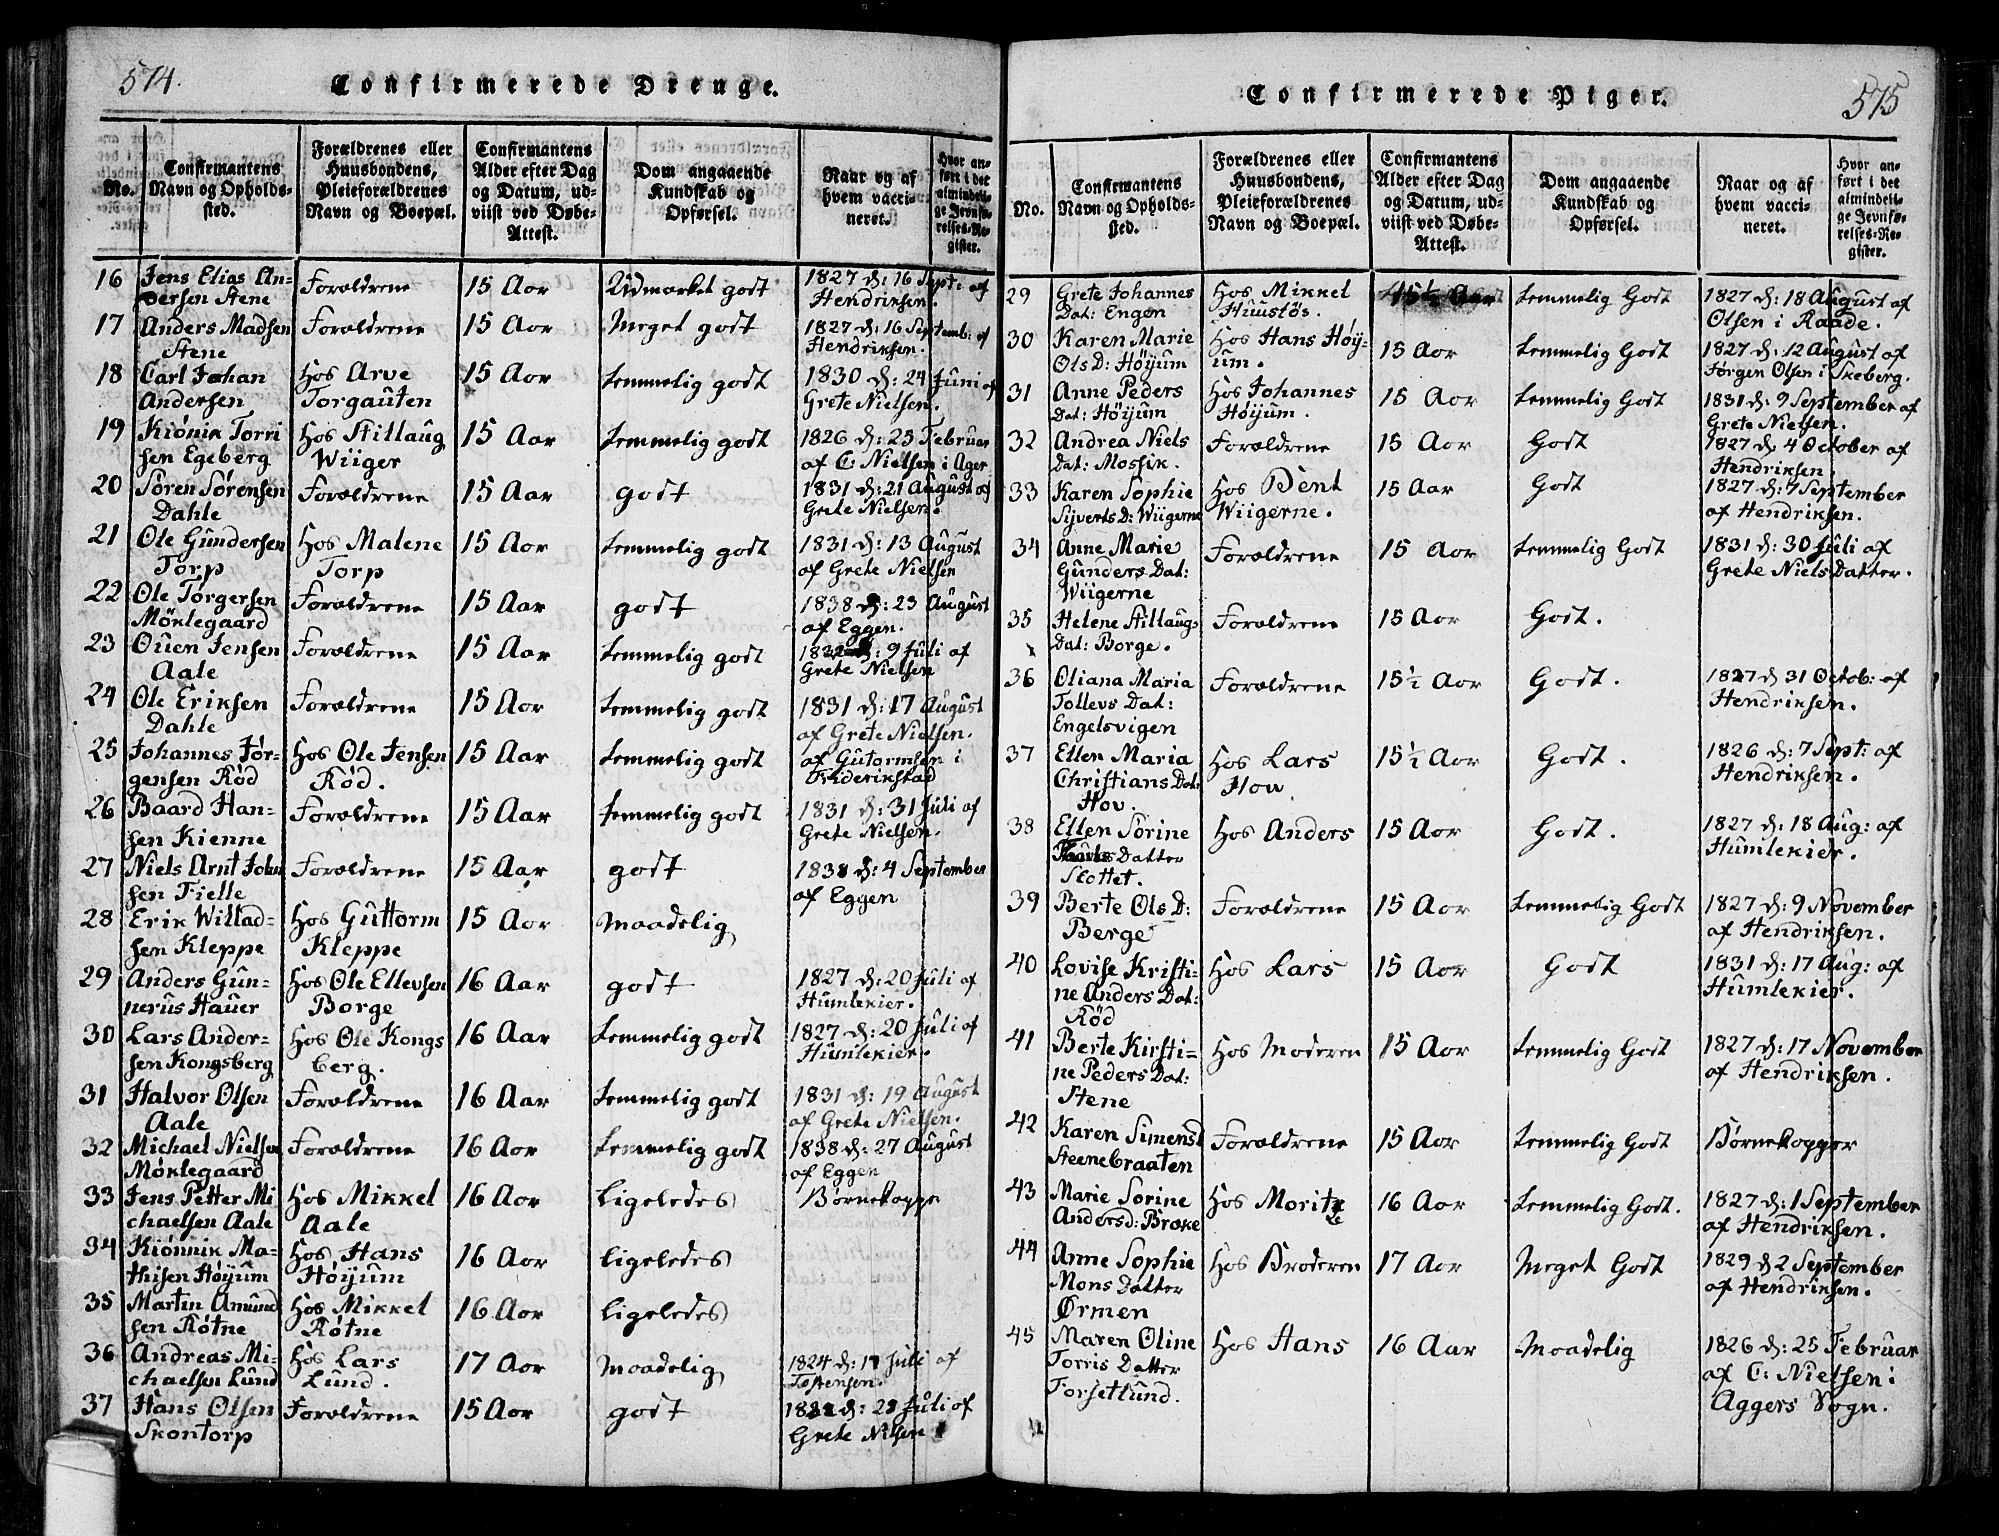 574.
Confirmerede Drenge.
No.
Confirmantens
Navn og Opholds-
sted.
Forældrenes eller
Huusbondens,
Pleieforældrenes
Navn og Boepæl.
Confirmantens
Alder efter Dag
og Datum, ud-
viist ved Døbe-
Attest.
Dom angaaende
Kundskab og
Opførsel.
Naar og af
hvem vacci-
neret.
Hvor an-
ført i det
almindeli-
ge Jevnfø-
relses-Re-
gister.
16 Jens Elias An- Forældrene 15 Aar Udmærket godt 1827 d: 16 Sept: af
dersen Stene Hendriksen.
17 Anders Madsen Forældrene 15 Aar Meget godt 1827 d: 16 Septemb: af
Stene Hendriksen.
18 Carl Johan Hos Arve 15 Aar temmelig godt 1830 d: 24 Juni af
Andersen Torgauten Grete Nielsen.
19 Kiönik Torri Hos Stillaug 15 Aar temmelig godt 1826 d: 25 Februar
sen Egeberg Wiiger af C: Nielsen i Ager
20 Sören Sörensen Forældrene 15 Aar godt 1831 d: 21 August af
Dahle Grete Nielsen.
21 Ole Gundersen Hos Malene 15 Aar temmelig godt 1831 d: 13 August
Torp Torp af Grete Nielsen
22 Ole Torgersen Forældrene 15 Aar godt 1838 d: 23 August
Möklegaard af Eggen.
23 Ouen Jensen Forældrene 15 Aar temmelig godt d: 9 Juli af
Aale Grete Nielsen
24 Ole Eriksen Forældrene 15 Aar temmelig godt 1831 d: 17 August
Dahle af Grete Nielsen.
25 Johannes Jør- Hos Ole Jensen 15 Aar temmelig godt af Gutormsen i
gensen Rød Rød. Friderikstad
26 Baard Han- Forældrene 15 Aar temmelig godt 1831 d: 31 Juli af
sen Kienne Grete Nielsen.
27 Niels Arnt John Forældrene 15 Aar godt 1838 d: 4 September
sen Fielle af Eggen
28 Erik Willad- Hos Guttorm 15 Aar maadelig
sen Kleppe Kleppe
29 Anders Gun- Hos Ole Ellevsen 16 Aar godt 1827 d: 20 Juli af
nerus Hauer Borge Humlekier.
30 Lars Ander- Hos Ole Kongs 16 Aar temmelig godt 1827 d: 20 Juli af
sen Kongsberg berg. Humlekier.
31 Halvor Olsen Forældrene 16 Aar temmelig godt 1831 d: 19 August
Aale af Grete Nielsen.
32 Michael Nielsen Forældrene 16 Aar temmelig godt 1838 d: 27 August
Möklegaard af Eggen
33 Jens Petter Mi Hos Mikkel 16 Aar ligeledes Børnekopper
chaelsen Aale Aale
34 Kiönnik Ma- Hos Hans 16 Aar ligeledes
thisen Höyum Höyum
35 Martin Amund Hos Mikkel 16 Aar ligeledes
sen Rötne Rötne
36 Andreas Mi- Hos Lars 17 Aar maadelig 1824 d: 17 Juli af
chaelsen Lund Lund. Tostensen.
37 Hans Olsen Forældrene 15 Aar godt d: 28 Juli af
Skontorp Grete Nilsen
575
Confirmerede Piger.
No.
Confirmantens
Navn og Opholds-
sted.
Forældrenes eller
Huusbondens,
Pleieforældrenes
Navn og Boepæl.
Confirmantens
Alder efter Dag
og Datum, ud-
viist ved Døbe-
Attest.
Dom angaaende
Kundskab og
Opførsel.
Naar og af
hvem vacci-
neret.
Hvor an-
ført i det
almindeli-
ge Jevnfø-
relses-Re-
gister.
29 Grete Johannes Hos Mikkel 15½ Aar temmelig Godt 1827 d: 18 August af
Dat: Engen Huustös. Olsen i Raade.
30 Karen Marie Hos Hans Höy- 15 Aar temmelig Godt 1827 d: 12 August af
Ols D: Höyum um. Jörgen Olsen i Skeberg.
31 Anne Peders Hos Johannes 15 Aar temmelig Godt 1831 d: 9 September af
Dat: Höyum Höyum. Grete Nielsen.
32 Andrea Niels Forældrene 15 Aar Godt 1827 d: 4 October af
Dat: Mossik. Hendriksen.
33 Karen Sophie Hos Bent 15 Aar Godt 1827 d: 7 September
Sijverts D: Wiigerne Wiigerne. af Hendriksen.
34 Anne Marie Forældrene 15 Aar temmelig Godt 1831 d: 30 Juli af
Gunders Dat: Grete Niels Datter.
Wiigerne
35 Helene Stillaug- Forældrene 15 Aar Godt.
Dat: Borge.
36 Oliana Maria Forældrene 15½ Aar Godt. 1827 d 31 Octob: af
Tollevs Dat: Hendriksen.
Engelsvigen
37 Ellen Maria Hos Lars 15½ Aar Godt. 1826 d: 7 Sept: af
Christians Dat: Hov Hendriksen.
Hov.
38 Ellen Sörine Hos Anders 15 Aar Godt. 1827 d: 18 Aug: af
Datter Humlekier.
Slottet.
39 Berte Ols D: Forældrene 15 Aar temmelig Godt 1827 d: 9 November
Berge af Hendriksen.
40 Lovise Kristi- Hos Lars 15 Aar Godt 1831 d: 17 Aug: af
ne Anders Dat: Humlekier.
Röd
41 Berte Kirsti- Hos Moderen 15 Aar temmelig Godt 1827 d: 17 November
ne Peders Dat: af Hendriksen.
Stene
42 Karen Simensd Forældrene 15 Aar temmelig Godt Børnekopper
Steenebraaten
43 Marie Sörine Hos Moritz 16 Aar temmelig Godt. 1827 d: 1 September
Andersd: Bræke af Hendriksen.
44 Anne Sophie Hos Broderen 17 Aar Meget Godt 1829 d 2 September
Mons Datter af Hendriksen.
Ørmen
45 Maren Oline Hos Hans 16 Aar Maadelig 1826 d: 25 Februar
Torris Datter af C: Nielsen i
Forsetlund. Aggers Sogn.